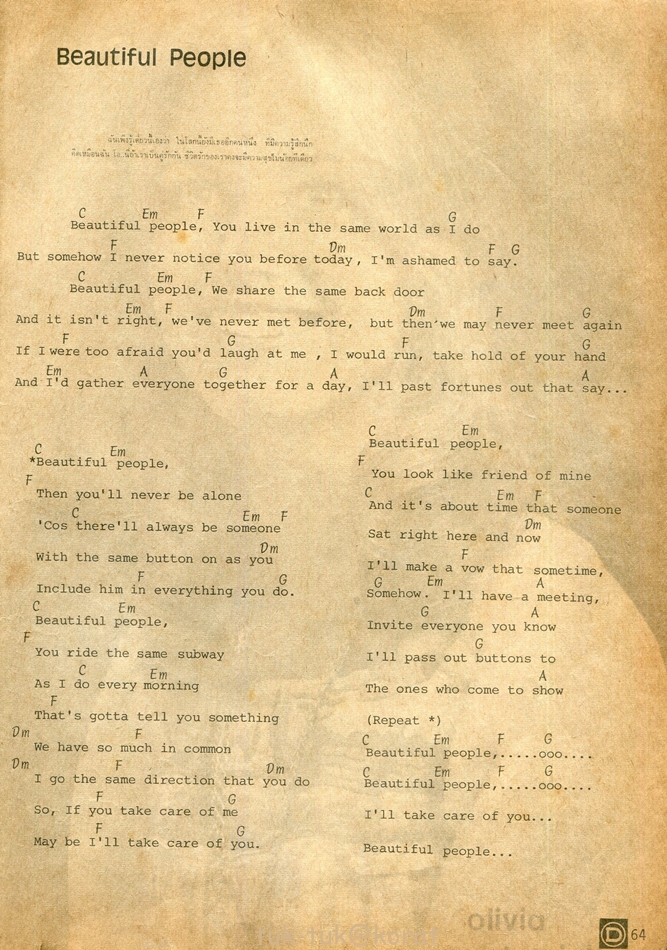 Beautiful People
ฉันเพิ่งรู้เดี๋ยวนี้เองว่า ในโลกนี้ยังมีเธออีกคนหนึ่ง ที่มีความรู้สึกนึก
คิดเหมือนฉัน
C Em F G
Beautiful people, You live in the same world as I do
F Dm F G
But somehow I never notice you before today, I'm ashamed to say.
C Em F
Beautiful people, We share the same back door
Em F Dm F G
And it isn't right, we've never met before, but then we may never meet again
F G F G
If I were too afraid you'd laugh at me , I would run, take hold of your hand
Em A G A A
And I'd gather everyone together for a day, I'll past fortunes out that say...
C Em
*Beautiful people,
F
Then you'll never be alone
C Em F
'Cos there'll always be someone
Dm
With the same button on as you
F G
Include him in everything you do.
C Em
Beautiful people,
F
You ride the same subway
C Em
As I do every morning
F
That's gotta tell you something
Dm F
We have so much in common
Dm F Dm
I go the same direction that you do
F G
So, If you take care of me
F G
May be I'll take care of you.
C Em
Beautiful people,
F
You look like friend of mine
C Em F
And it's about time that someone
Dm
Sat right here and now
F
I'll make a vow that sometime,
G Em A
Somehow. I'll have a meeting,
G A
Invite everyone you know
G
I'll pass out buttons to
A
The ones who come to show
(Repeat *)
C Em F G
Beautiful people,.....ooo....
C Em F G
Beautiful people,.....ooo....
I'll take care of you...
Beautiful people...
olivia
D 64